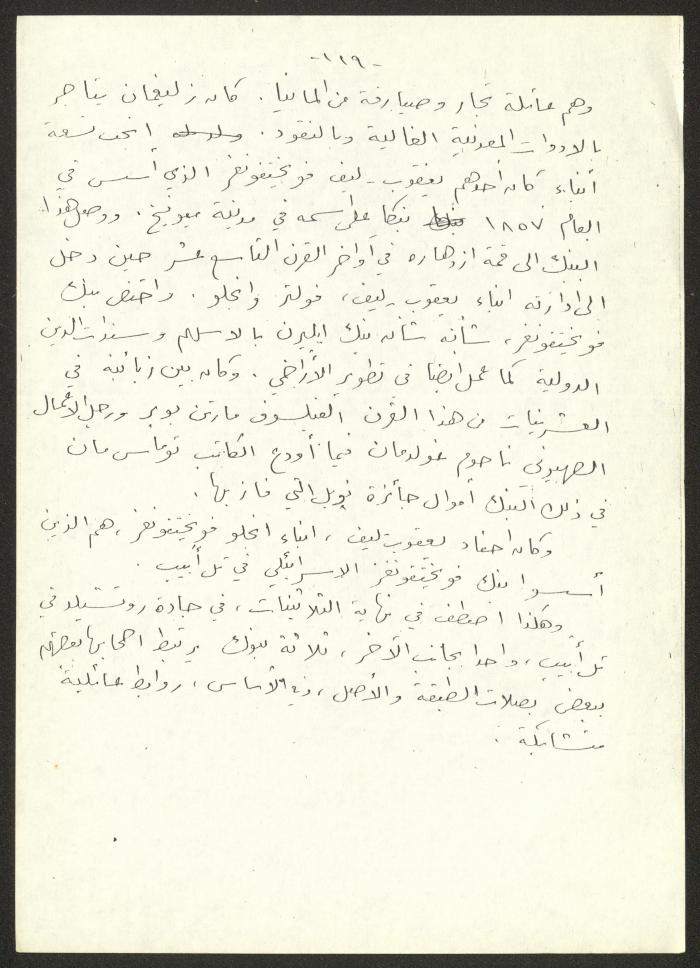 -١١٩-
وهم عائلة تجار وصيارفة من المانيا. كان زليغمان يتاجر
بالادوات المعدنية الغالية وبالنقود. انجب تسعة
أبناء كان أحدهم يعقوب - ليف فويختفونغر الذي أسس في
العام ١٨٥٧ بنكا على اسمه في مدينة ميونيخ. ووصل هذا
البنك الى قمة ازدهاره في أواخر القرن التاسع عشر حين دخل
الى ادارته ابناء يعقوب - ليف، فولتز وانجلو. واختص بنك
فويختفونغر، شأنه شأن بنك ايلبرن بالاسهم وسندات الدين
الدولية كما عمل ايضا في تطوير الأراضي. وكان بين زبائنه في
العشرينات من هذا القرن الفيلسوف مارتن بوبر ورجل الاعمال
الصهيوني ناحوم غولدمان فيما أودع الكاتب توماس مان
في ذلك البنك أموال جائزة نوبل التي فاز بها.
وكان احفاد يعقوب ليف، ابناء انجلو فويختفونغر، هم الذين
أسسوا بنك فويختفونغر الاسرائيلي في تل أبيب.
وهكذا اصطف في نهاية الثلاثينات، في جادة روتشيلد في
تل أبيب، واحدا بجانب الآخر، ثلاثة بنوك يرتبط اصحابها بعضهم
ببعض بصلات الطبقة والأصل، وفي الأساس، روابط عائلية
متشابكة.